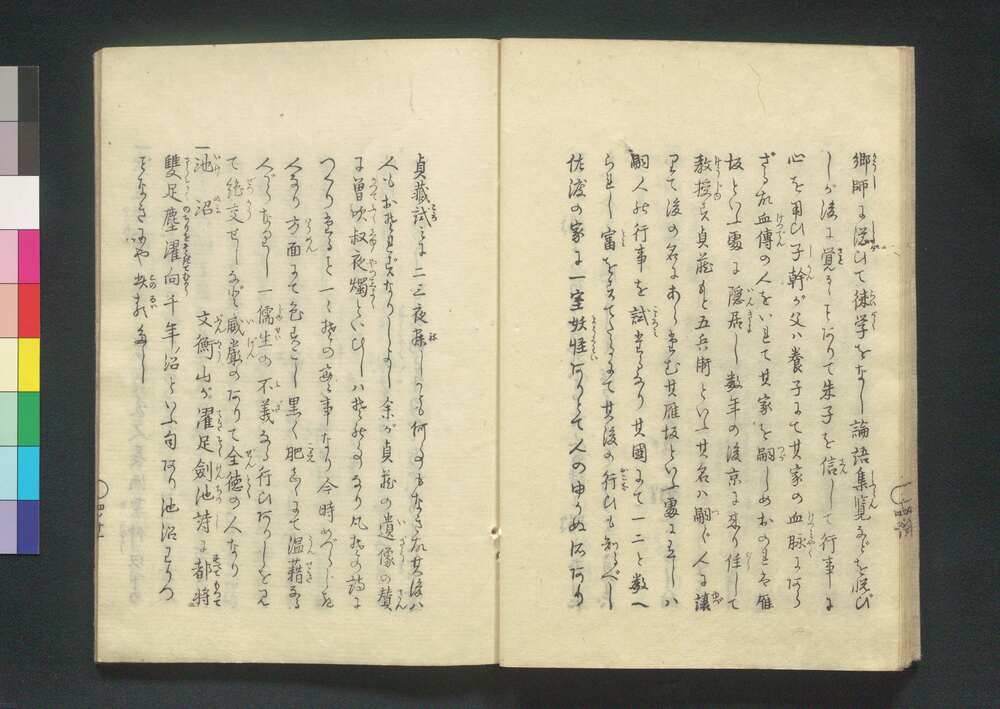 郷師に従ひて徒学をなし論語集覧などを悦び
しが後に覚ることありて朱子を信じて行事に
心を用ひ子幹が父ハ養子にて其家の血脉にあら
ざる故血傳の人をいれて其家を嗣しめおのれは雁
坂といふ處に隠居し数年の後京に来り住して
教授し貞蔵もと五兵衛といふ其名ハ嗣ぐ人に譲
りて後の名にあらたむ其雁坂といふ處に在しハ
嗣人の行事を試るなり其國にて一二と数へ
られし富をすてたるにて其後の行ひも知るべし
佐渡の家に一室妖怪ありとて人の申さぬ所あり
貞蔵試に二三夜寐しかども何のこともなき故其後ハ
人もおそれずなりしよし余が貞蔵の遺像の賛
に曽吹叔夜燭といひしハそのことなり凡その詩に
つくりたること一々その實事なり今時めづらしき
人なり方面にて色すこし黒く肥たるにて温藉なる
人がらなりし一儒生の不義なる行ひありしを見
て絶交せしなど威嚴のありて全徳の人なり
一池沼　文衡山が濯足劍池詩に都將
雙足塵濯向千年沼といふ句あり池沼わかつ
ことなきにや此類多し